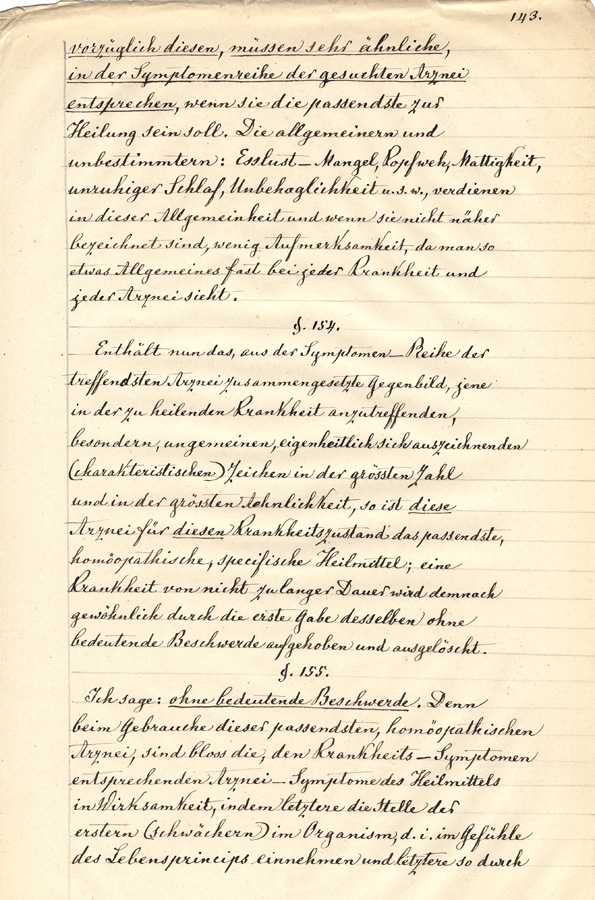 143.
vorzüglich diesen, müssen sehr ähnliche,
in der Symptomenreihe der gesuchten Arznei
entsprechen, wenn sie die passendste zur
Heilung sein soll. Die allgemeinern und
unbestimmtern: Esslust-Mangel, Kopfweh, Mattigkeit,
unruhiger Schlaf, Unbehaglichkeit u.s.w., verdienen
in dieser Allgemeinheit und wenn sie nicht näher
bezeichnet sind, wenig Aufmerksamkeit, da man so
etwas Allgemeines fast bei jeder Krankheit und
jeder Arznei sieht.
§. 154.
Enthält nun das, aus der Symptomen-Reihe der
treffendsten Arznei zusammengesetzte Gegenbild, jene
in der zu heilenden Krankheit anzutreffenden,
besondern, ungemeinen, eigenheitlich sich auszeichnenden
(charakteristischen) Zeichen in der grössten Zahl
und in der grössten Aehnlichkeit, so ist diese
Arznei für diesen Krankheitszustand das passendste,
homöopathische, specifische Heilmittel; eine
Krankheit von nicht zu langer Dauer wird demnach
gewöhnlich durch die erste Gabe desselben ohne
bedeutende Beschwerde aufgehoben und ausgelöscht.
§. 155.
Ich sage: ohne bedeutende Beschwerde. Denn
beim Gebrauche dieser passendsten, homöopathischen
Arznei, sind bloss die, den Krankheits-Symptomen
entsprechenden Arznei-Symptome des Heilmittels
in Wirksamkeit, indem letztere die Stelle der
erstern (schwächern) im Organism, d. i. im Gefühle
des Lebensprincips einnehmen und letztere so durch